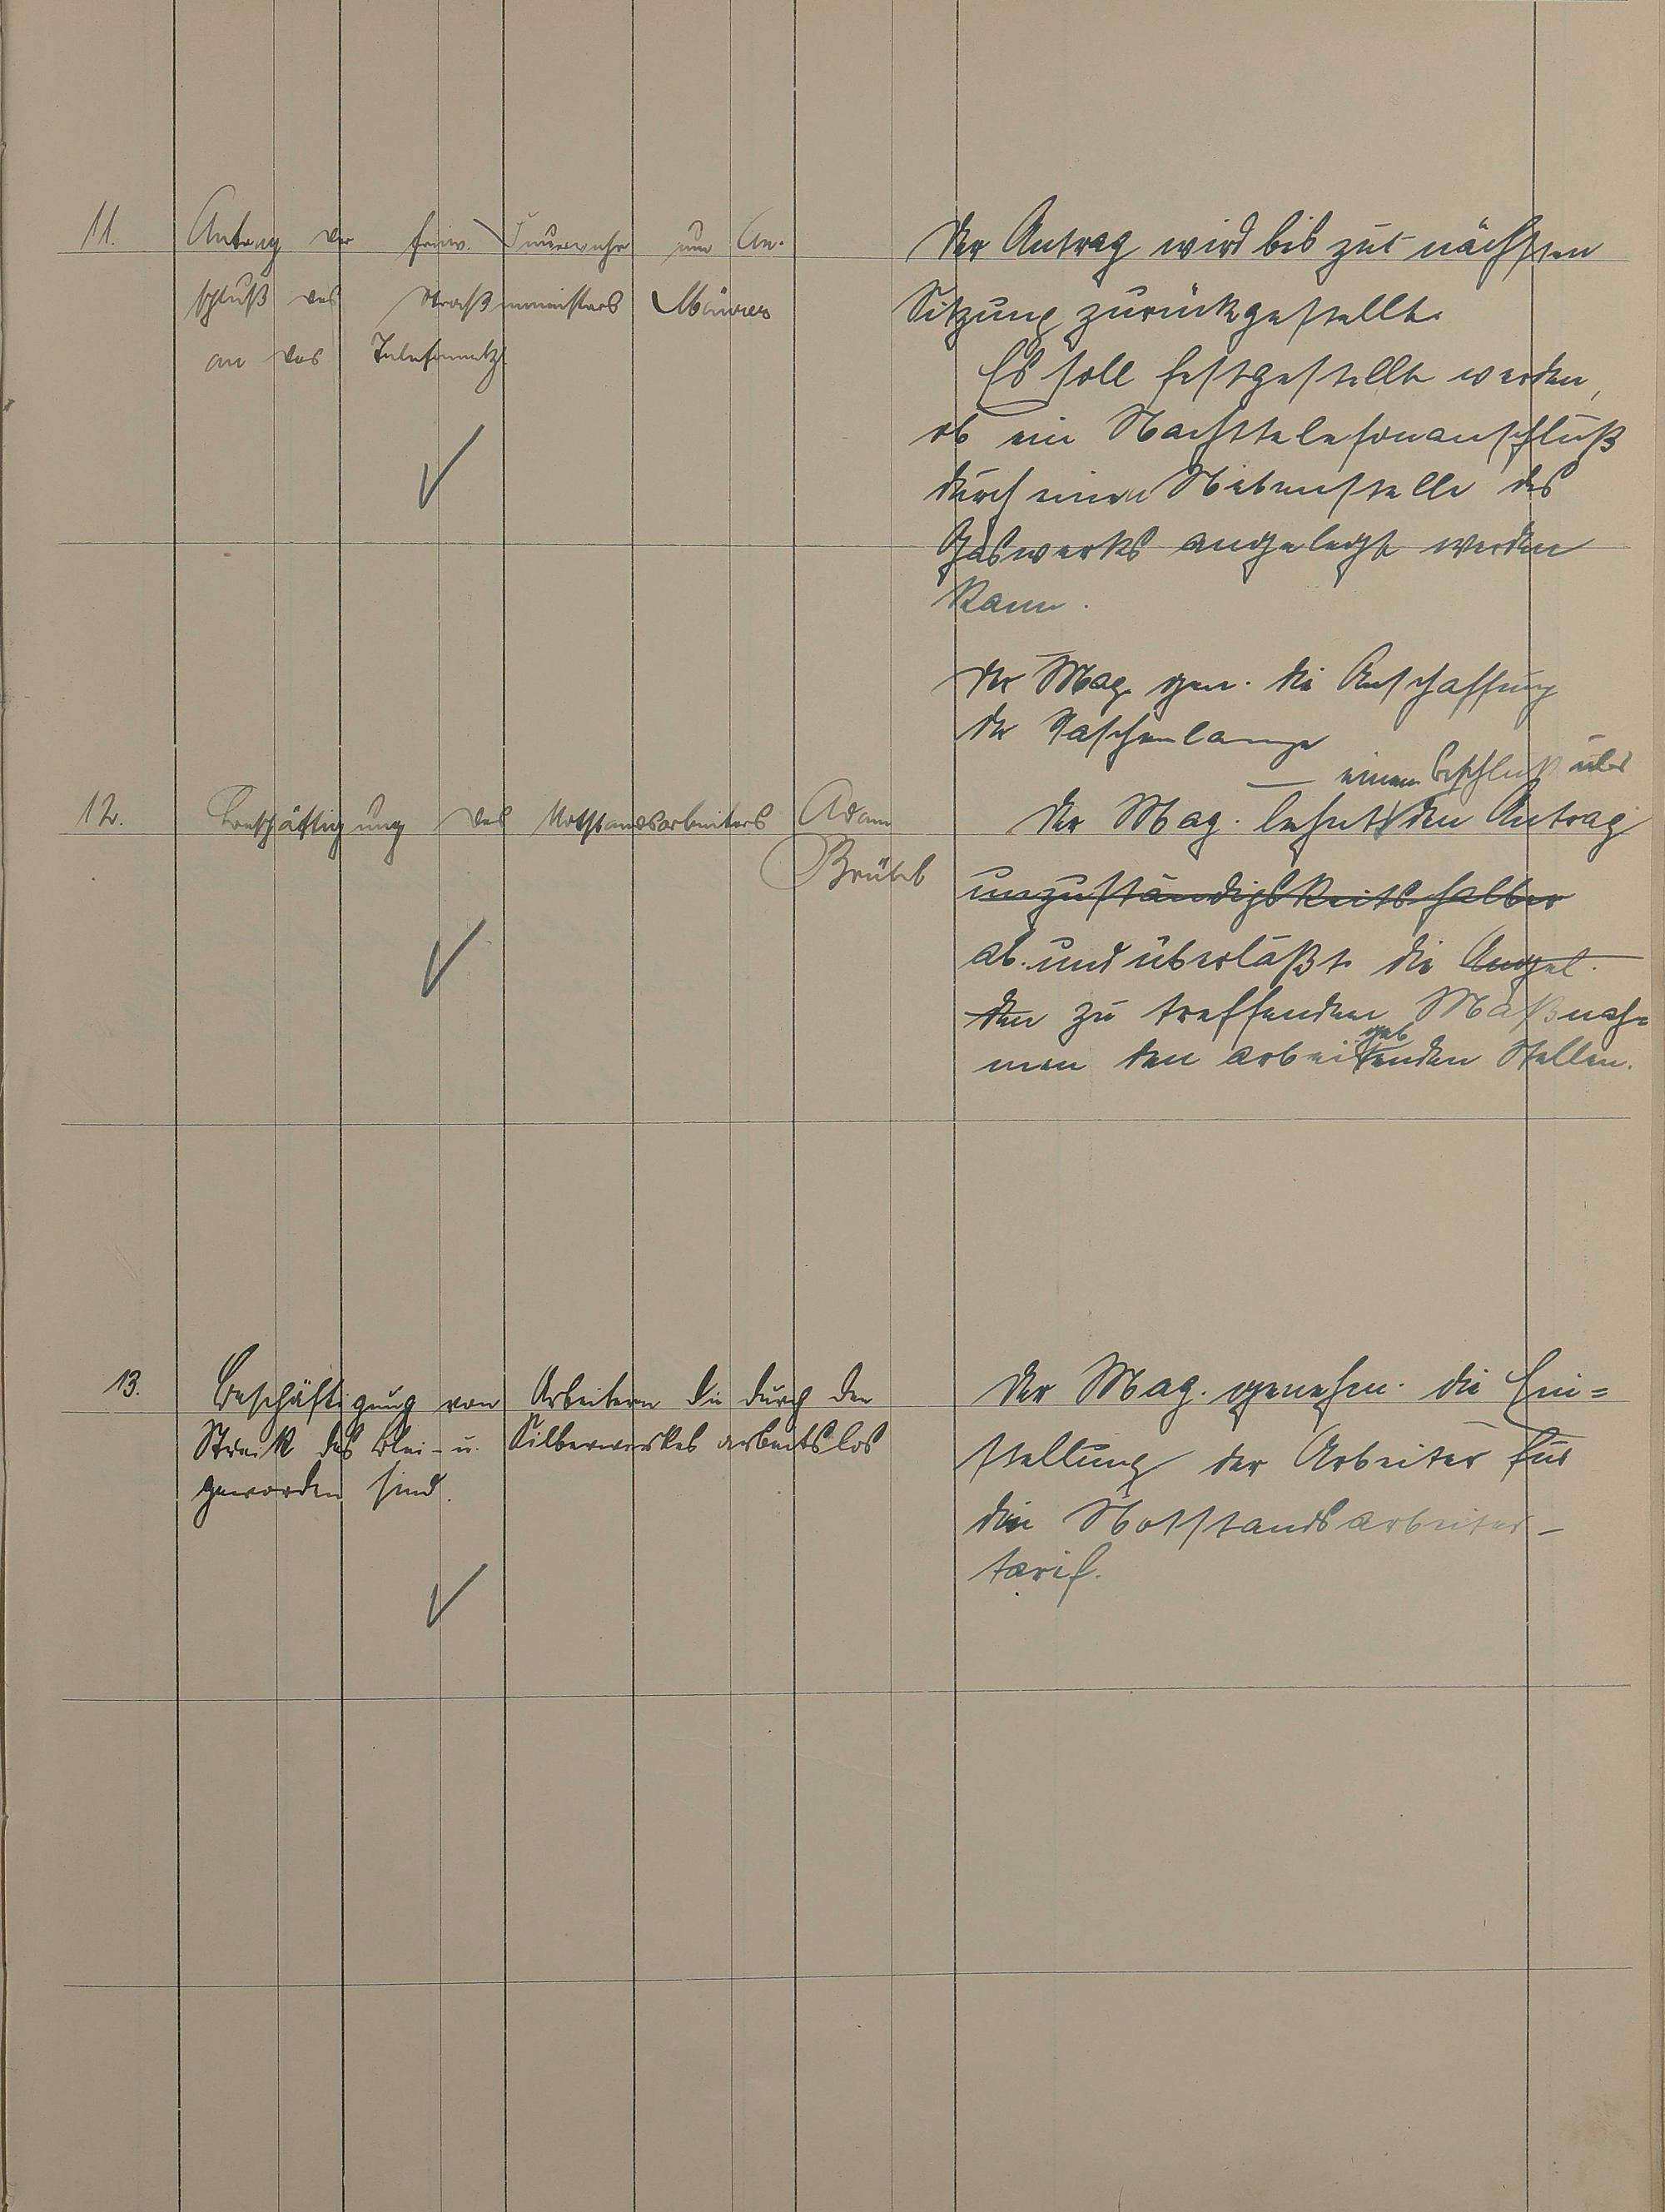 11.
Antrag der freiw. Feuerwehr um An-
schluß des Brandmeisters Maurer
an das Telefonnetz
Der Antrag wird bis zur nächsten
Sitzung zurückgestellt.
Es soll festgestellt werden,
ob ein Nachttelefonanschluß
durch einen Nebenstelle des
Gaswerks angelegt werden
kann.
Der Mag. gen. die Anschaffung
der Taschenlampe
12.
Beschäftigung des Notstandsarbeiters Adam
einen Beschluß über
Der Mag. lehnt den Antrag
unzuständigkeitshalber
ab und überläßt die Angel.
den zu treffenden Maßnah=
geb
men den arbeitenden Stellen.
13.
Beschäftigung von Arbeitern die durch den
Streik des Blei- u. Silberwerkes arbeitslos
geworden sind.
Der Mag. genehm. die Ein=
stellung der Arbeiter für
den Notstandsarbeiter-
tarif.